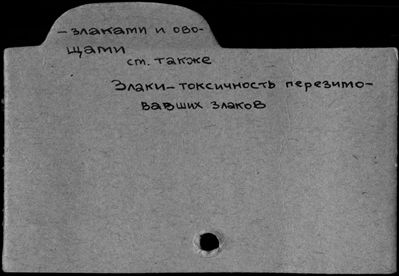 – злаками и ово-
щами
см. также
Злаки – токсичность перезимо-
вавших злаков